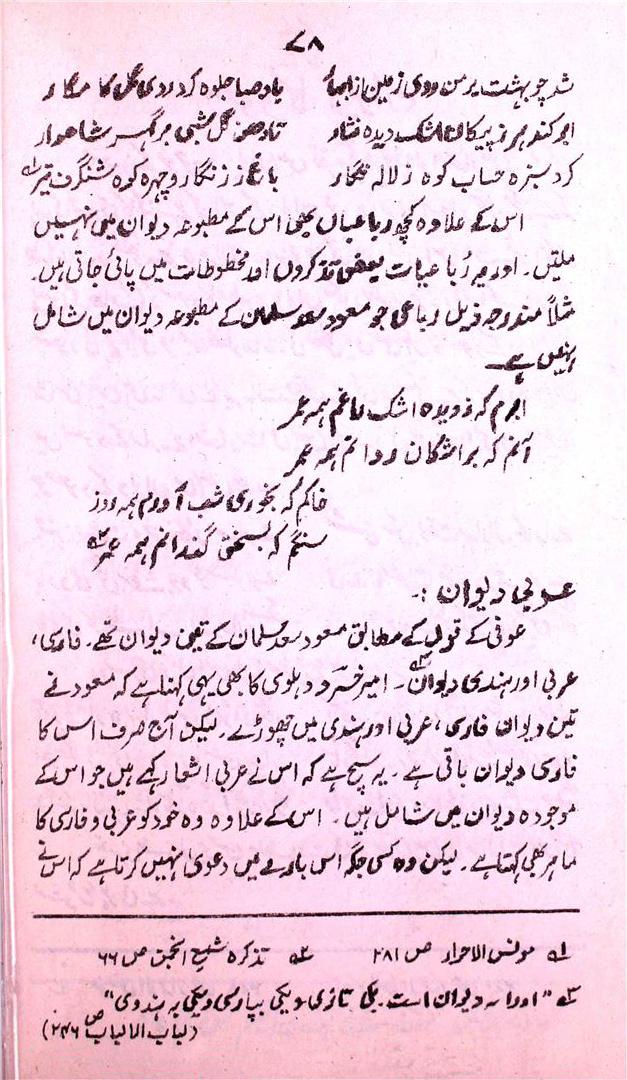 ۷۸
شد چو بہشت برین روی زمین از بہار باد صبا جلوہ کرد روی گل کامگار
ابر کند ہر ز پیکان اشک دیدہ نثار تا دھن گل شبی پر گہر شاھوار
کرد سبزہ حساب کوہ ز لالہ نگار باغ ز زنگار و چہرہ کوہ شنگرف تیر لہ
اس کے علاوہ کچھ رباعیاں بھی اس کے مطبوعہ دیوان میں نہیں
ملتیں۔ اور یہ رُباعیات بعض تذکروں اور مخطوطات میں پائی جاتی ہیں۔
مثلاً مندرجہ ذیل رباعی جو مسعود سعد سلمان کے مطبوعہ دیوان میں شامل
نہیں ہے۔
ابرم کہ ز دیدہ اشک رانم ہمہ عمر
آنم کہ بر اشکان روانم ہمہ عمر
خاکم کہ بخوری شب آورم ہمہ روز
سنگم کہ بسختی گذرانم ہمہ عمر ۲ہ
عربی دیوان :۔
عوفی کے قول کے مطابق مسعود سعد سلمان کے تین دیوان تھے۔ فارسی،
عربی اور ہندی دیوان ۳ہ۔ امیر خسرو دہلوی کا بھی یہی کہنا ہے کہ مسعود نے
تین دیوان فارسی، عربی اور ہندی میں چھوڑے۔ لیکن آج صرف اس کا
فارسی دیوان باقی ہے۔ یہ سچ ہے کہ اس نے عربی اشعار کہے ہیں جو اس کے
موجودہ دیوان میں شامل ہیں۔ اس کے علاوہ وہ خود کو عربی و فارسی کا
ماہر بھی کہتا ہے۔ لیکن وہ کسی جگہ اس بارے میں دعویٰ نہیں کرتا ہے کہ اس نے
۱ہ مونس الاحرار ص ۲۸۱ ۲ہ تذکرہ شمیع انجمن ص ۶۶
۳ہ "اورا سہ دیوان است یکی تازی و یکی بپارسی و یکی بہ ہندوی"
(لباب الالباب ص ۲۴۶)